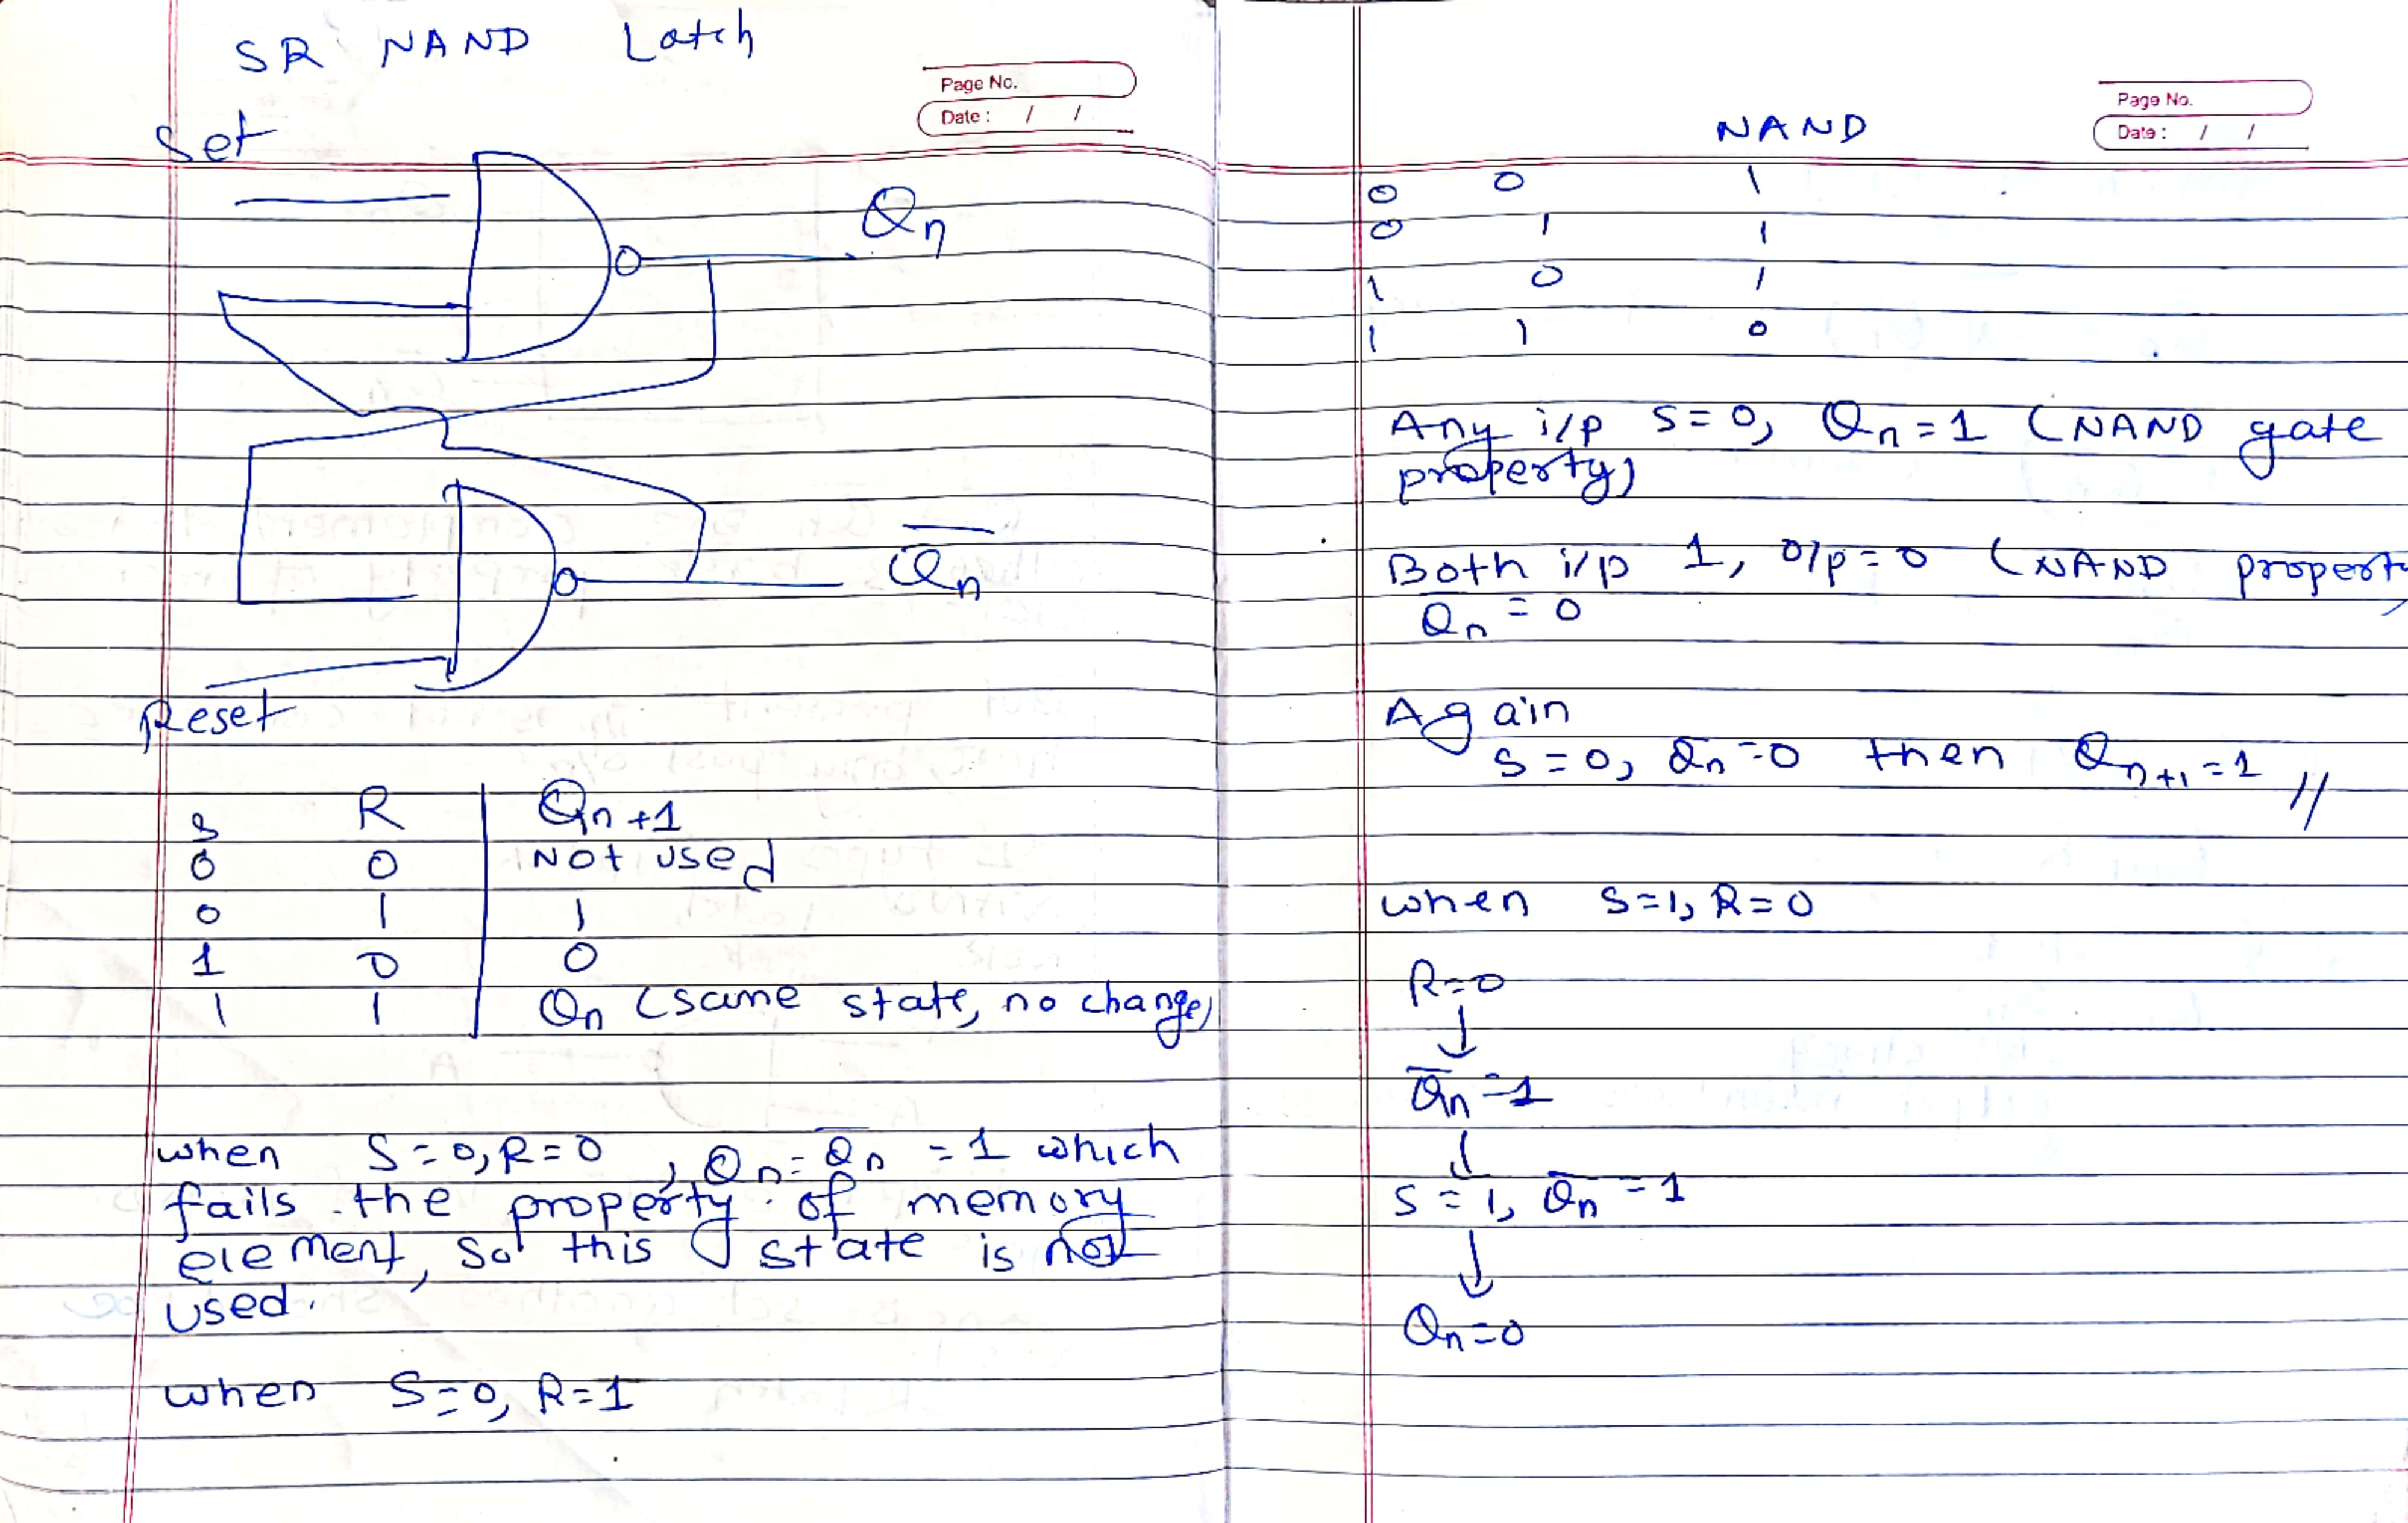 SR NAND Latch
Page No.
Date : / /
Set
Qn
Q̅n
Reset
S R Qn+1
0 0 Not used
0 1 1
1 0 0
1 1 Qn (same state, no change)
when S=0, R=0, Qn=Q̅n=1 which
fails the property of memory
element, so this state is not
used.
when S=0, R=1
Page No.
Date : / /
NAND
0 0 1
0 1 1
1 0 1
1 1 0
Any i/p S=0, Qn=1 (NAND gate
property)
Both i/p 1, o/p=0 (NAND property
Q̅n = 0
Again
S=0, Q̅n=0 then Qn+1=1 //
when S=1, R=0
R=0
↓
Q̅n=1
↓
S=1, Q̅n=1
↓
Qn=0